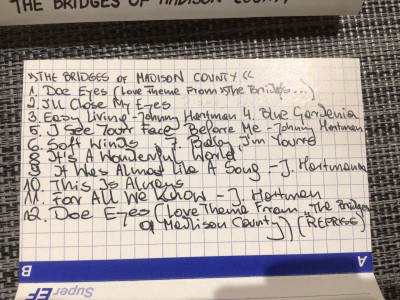 THE BRIDGES OF MADISON COUNTY
»THE BRIDGES OF MADISON COUNTY«
1. Doe Eyes (Love Theme From »The Bridges...)
2. I'll Close My Eyes
3. Easy Living - Johnny Hartman 4. Blue Gardenia
5. I See Your Face Before Me - Johnny Hartman
6. Soft Winds - 7. Baby, I'm Yours
8. It's A Wonderful World
9. It Was Almost Like A Song - J. Hartman
10. This Is Always
11. For All We Know - J. Hartman
12. Doe Eyes (Love Theme From „The Bridges
of Madison County") (REPRISE)
B A
Super EF